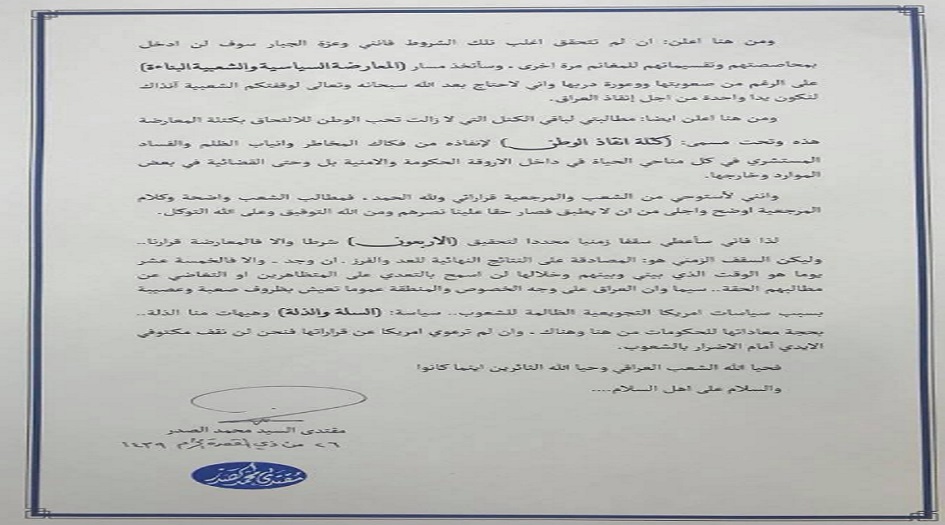 ومن هنا اعلن: ان لم تتحقق اغلب تلك الشروط فانني وعزة الجبار سوف لن ادخل
بمحاصصتهم وتقسيماتهم للمغانم مرة اخرى . وسأتخذ مسار (المعارضة السياسية والشعبية البناءة)
على الرغم من صعوبتها ووعورة دربها واني لاحتاج بعد الله سبحانه وتعالى لوقفتكم الشعبية آنذاك
لنكون يدا واحدة من اجل إنقاذ العراق.
ومن هنا اعلن ايضا: مطالبتي لباقي الكتل التي لا زالت تحب الوطن للالتحاق بكتلة المعارضة
هذه وتحت مسمى: (كتلة انقاذ الوطن) لإنقاذه من فكاك المخاطر وانياب الظلم والفساد
المستشري في كل مناحي الحياة في داخل الاروقة الحكومة والامنية بل وحتى القضائية في بعض
الموارد وخارجها.
وانني لأستوحي من الشعب والمرجعية قراراتي ولله الحمد . فمطالب الشعب واضحة وكلام
المرجعية اوضح واجلى من ان لا يطبق فصار حقا علينا نصرهم ومن الله التوفيق وعلى الله التوكل.
لذا فاني سأعطي سقفا زمنيا محددا لتحقيق (الاربعون) شرطا والا فالمعارضة قرارنا..
وليكن السقف الزمني هو: المصادقة على النتائج النهائية للعد والفرز . ان وجد . والا فالخمسة عشر
يوما هو الوقت الذي بيني وبينهم وخلالها لن اسمح بالتعدي على المتظاهرين او التغاضي عن
مطالبهم الحقة.. سيما وان العراق على وجه الخصوص والمنطقة عموما تعيش بظروف صعبة وعصيبة
بسبب سياسات امريكا التجويعية الظالمة للشعوب.. سياسة: (السلة والذلة) وهيهات منا الذلة..
بحجة معاداتها للحكومات من هنا وهناك . وان لم ترعوي امريكا عن قراراتها فنحن لن نقف مكتوفي
الايدي أمام الاضرار بالشعوب.
فحيا الله الشعب العراقي وحيا الله الثائرين اينما كانوا
والسلام على اهل السلام....
مقتدى السيد محمد الصدر
٢٦ من ذي القعدة ١٤٣٩
مقتدى محمد الصدر